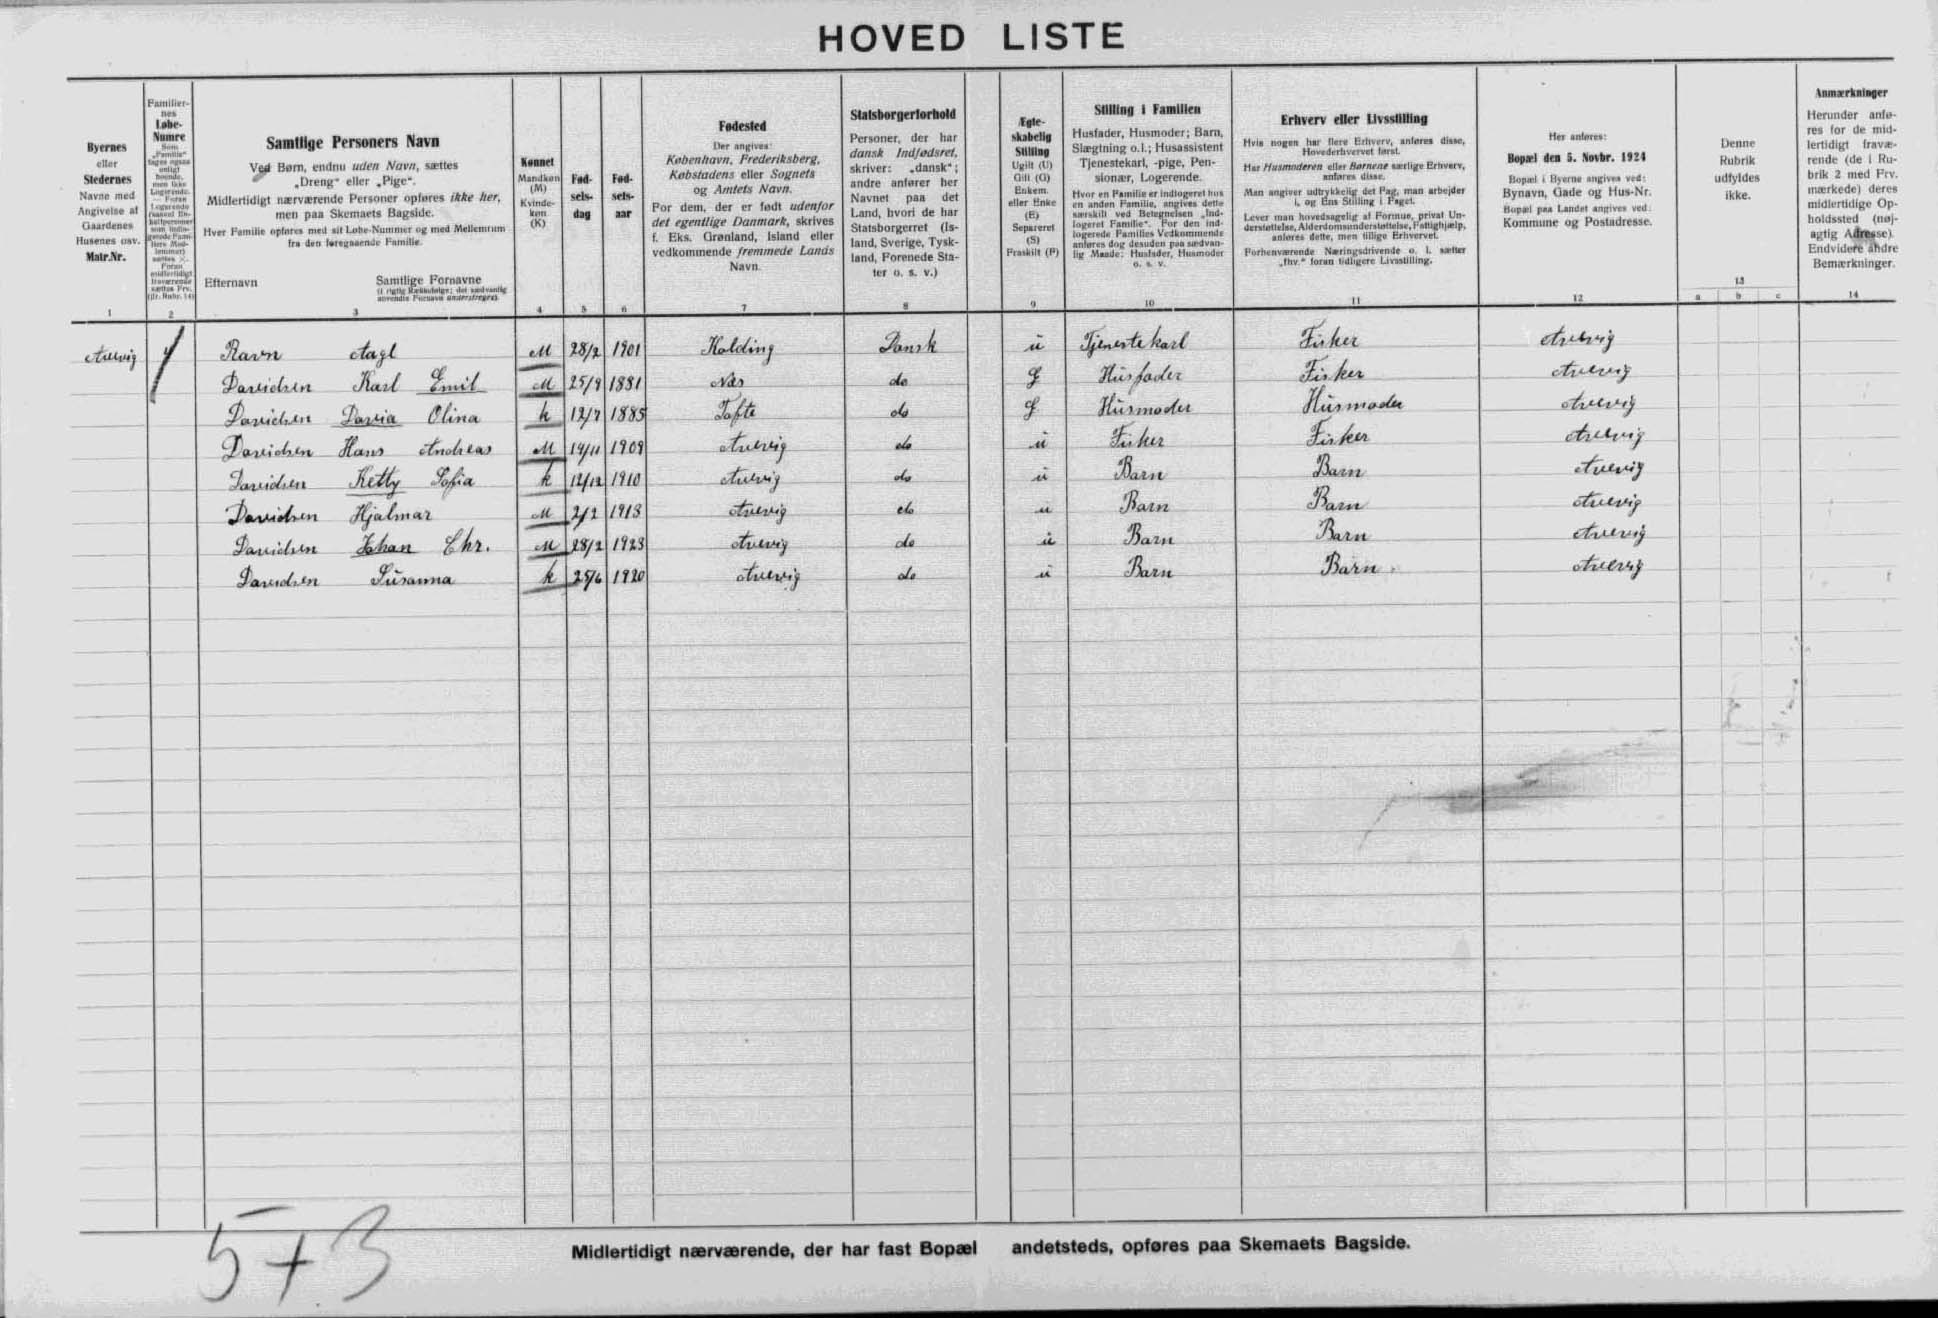 HOVED LISTE
Byernes
eller
Stedernes
Navne med
Angivelse af
Gaardenes
Husenes osv.
Matr.Nr.
Familier-
nes
Løbe-
Numre
Samtlige Personers Navn
Ved Børn, endnu uden Navn, sættes
„Dreng“ eller „Pige“.
Midlertidigt nærværende Personer opføres ikke her,
men paa Skemaets Bagside.
Hver Familie opføres med sit Løbe-Nummer og med Mellemrum
fra den foregaaende Familie.
Efternavn
Samtlige Fornavne
(i rigtig Rækkefølge; det sædvanlig
anvendte Fornavn understreges).
Kønnet
Mandkøn
(M)
Kvinde-
køn
(K)
Fød-
sels-
dag
Fød-
sels-
aar
Fødested
Der angives:
København, Frederiksberg,
Købstadens eller Sognets
og Amtets Navn.
For dem, der er født udenfor
det egentlige Danmark, skrives
f. Eks. Grønland, Island eller
vedkommende fremmede Lands
Navn.
Statsborgerforhold
Personer, der har
dansk Indfødsret,
skriver: „dansk“;
andre anfører her
Navnet paa det
Land, hvori de har
Statsborgerret (Is-
land, Sverige, Tysk-
land, Forenede Sta-
ter o. s. v.)
Ægte-
skabelig
Stilling
Ugift (U)
Gift (G)
Enkem.
eller Enke
(E)
Separeret
(S)
Fraskilt (F)
Stilling i Familien
Husfader, Husmoder; Barn,
Slægtning o.l.; Husassistent
Tjenestekarl, -pige, Pen-
sionær, Logerende.
Hvor en Familie er indlogeret hus
en anden Familie, angives dette
særskilt ved Betegnelsen „Ind-
logeret Familie“. For den ind-
logerede Families Vedkommende
anføres dog desuden paa sædvan-
lig Maade: Husfader, Husmoder
o. s. v.
Erhverv eller Livsstilling
Hvis nogen har flere Erhverv, anføres disse,
Hovederhvervet først.
Har Husmoderen eller Børnene særlige Erhverv,
anføres disse.
Man angiver udtrykkelig det Fag, man arbejder
i, og Ens Stilling i Faget.
Lever man hovedsagelig af Formue, privat Un-
derstøttelse, Alderdomsunderstøttelse, Fattighjælp,
anføres dette, men tillige Erhvervet.
Forhenværende Næringsdrivende o. l. sætter
„fhv.“ foran tidligere Livsstilling.
Her anføres:
Bopæl den 5. Novbr. 1924
Bopæl i Byerne angives ved:
Bynavn, Gade og Hus-Nr.
Bopæl paa Landet angives ved:
Kommune og Postadresse.
Denne
Rubrik
udfyldes
ikke.
Anmærkninger
Herunder anfø-
res for de mid-
lertidigt fravæ-
rende (de i Ru-
brik 2 med Frv.
mærkede) deres
midlertidige Op-
holdssted (nøj-
agtig Adresse).
Endvidere andre
Bemærkninger.
1 2 3 4 5 6 7 8 9 10 11 12 13 a b c 14
Arevig Ravn Aagl M 28/2 1901 Kolding Dansk u Tjenestekarl Fisker Arevig
Davidsen Karl Emil M 25/9 1881 Næs do G Husfader Fisker Arevig
Davidsen Davia Olina k 12/7 1885 Tofte do G Husmoder Husmoder Arevig
Davidsen Hans Andreas M 14/11 1909 Arevig do u Fisker Fisker Arevig
Davidsen Ketty Sofia k 12/12 1910 Arevig do u Barn Barn Arevig
Davidsen Hjalmar M 2/2 1913 Arevig do u Barn Barn Arevig
Davidsen Johan Chr. M 28/2 1923 Arevig do u Barn Barn Arevig
Davidsen Susanna k 25/6 1920 Arevig do u Barn Barn Arevig
5+3
Midlertidigt nærværende, der har fast Bopæl andetsteds, opføres paa Skemaets Bagside.